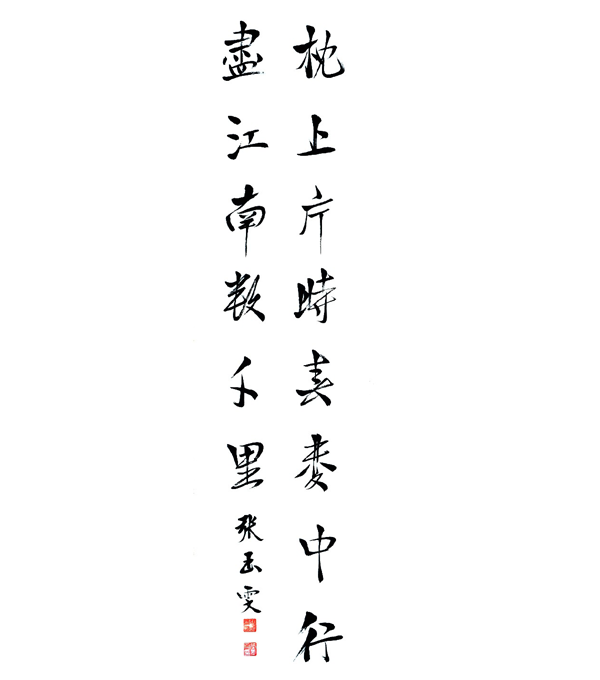 枕上片時春夢中行
盡江南數千里
張玉雯